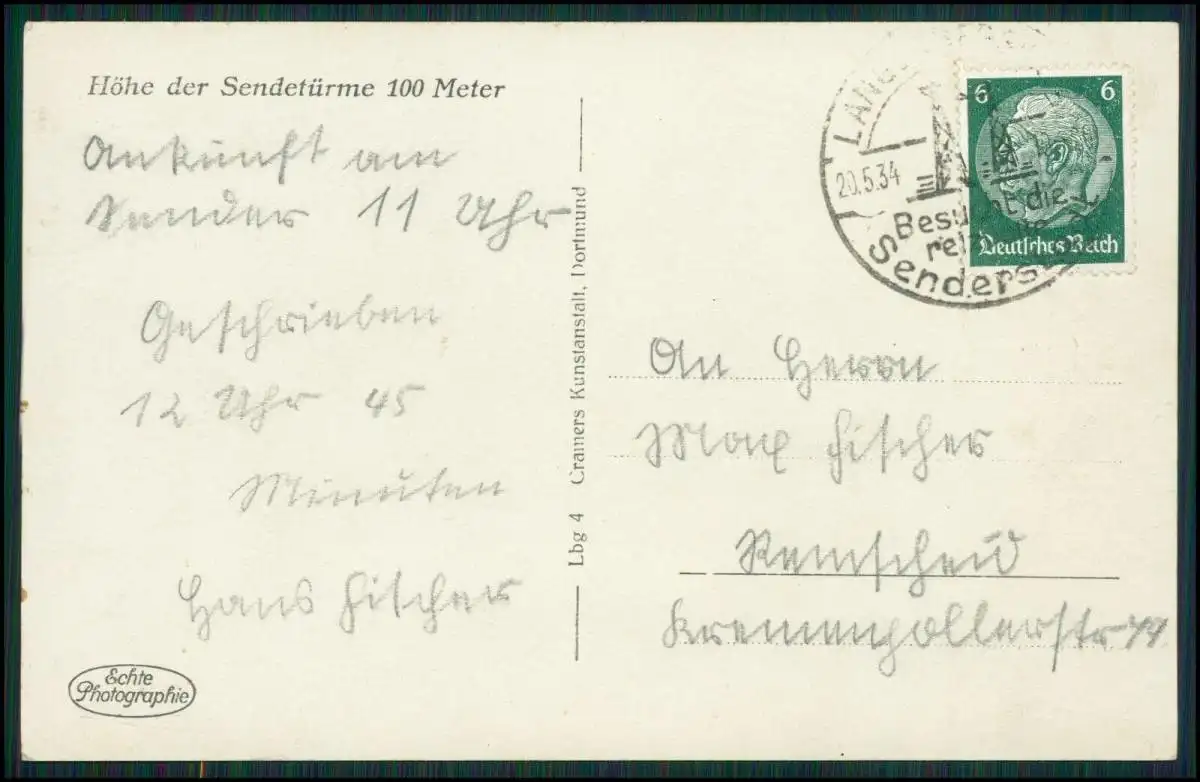 Höhe der Sendetürme 100 Meter
Ankunft am
Sender 11 Uhr
Geschrieben
12 Uhr 45
Minuten
Hans Fischer
Echte
Photographie
Lbg 4 Cramers Kunstanstalt, Dortmund
LANG
20.5.34
Besucht die
Senders
6 6
Deutsches Reich
An Herrn
Max Fischer
Remscheid
Kremenhollerstr 44